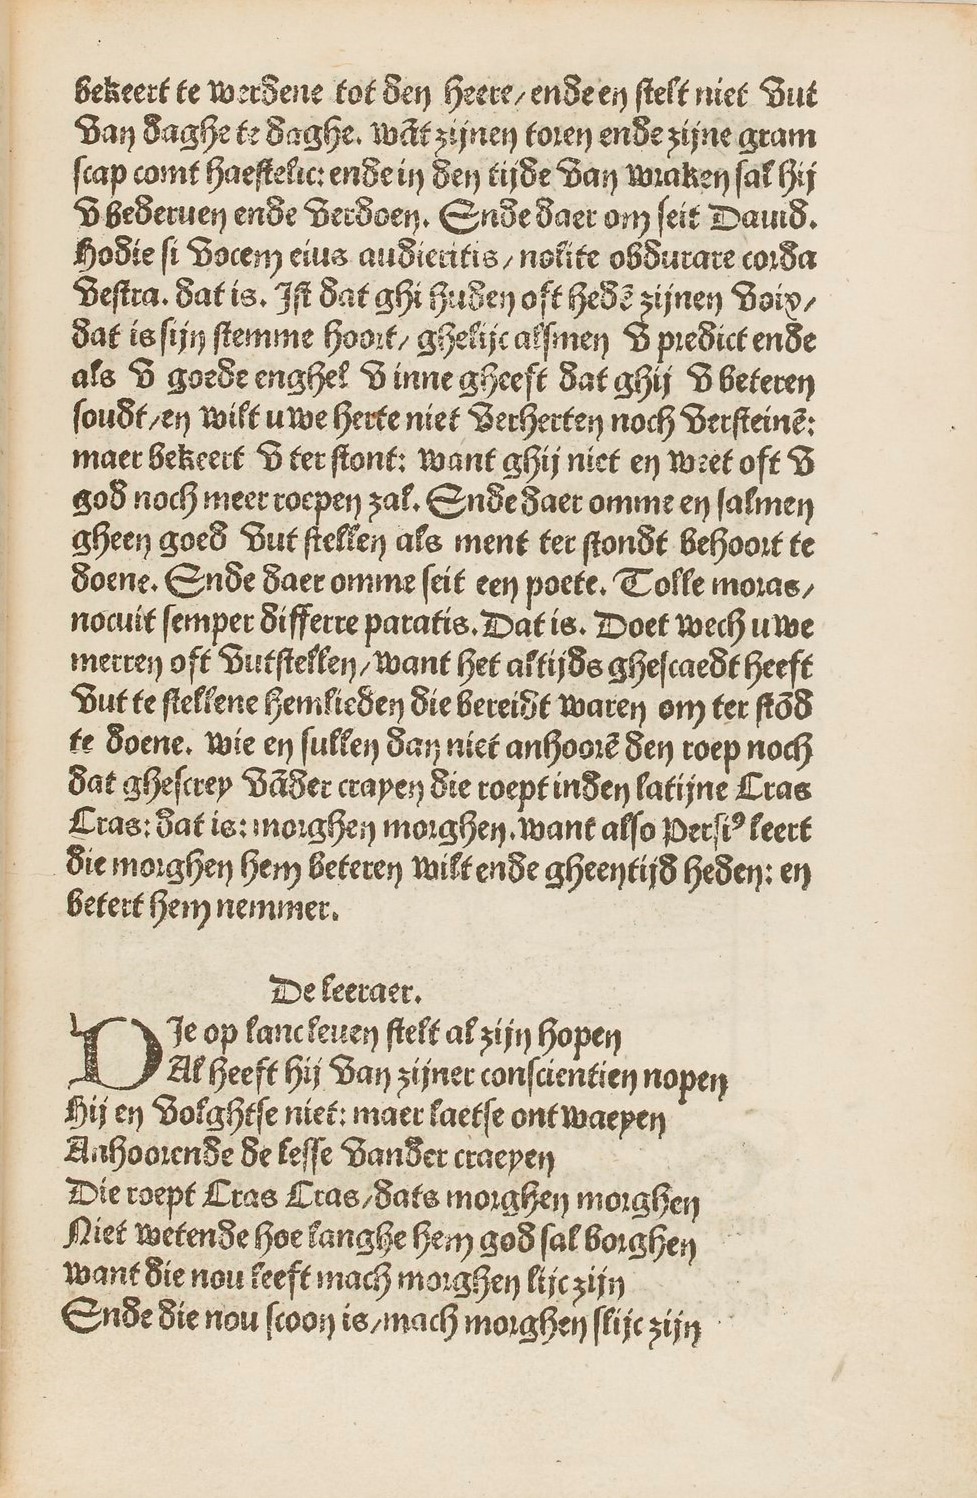 bekeert te werdene tot den heere/ ende en stelt niet vut
van daghe te daghe. wāt zijnen toren ende zijne gram
scap comt haestelic: ende in den tijde van wraken sal hij
v bederuen ende verdoen. Ende daer om seit Dauid.
Hodie si vocem eius audieritis/ nolite obdurare corda
vestra. dat is. Ist dat ghi huden oft hedē zijnen voix/
dat is sijn stemme hoort/ ghelijc alsmen v predict ende
als v goede enghel v inne gheeft dat ghij v beteren
soudt/ en wilt uwe herte niet verherten noch versteinē:
maer bekeert v ter stont: want ghij niet en weet oft v
god noch meer roepen zal. Ende daer omme en salmen
gheen goed vut stellen als ment ter stondt behoort te
doene. Ende daer omme seit een poete. Tolle moras/
nocuit semper differre paratis. Dat is. Doet wech uwe
merren oft vutstellen/ want het altijds ghescaedt heeft
vut te stellene hemlieden die bereidt waren om ter stōd
te doene. wie en sullen dan niet anhoorē den roep noch
dat ghescrey vāder crayen die roept inden latijne Cras
Cras: dat is: morghen morghen. want also Persi⁹ leert
die morghen hem beteren wilt ende gheen tijd heden: en
betert hem nemmer.
De leeraer.
DIe op lanc leuen stelt al zijn hopen
Al heeft hij van zijner conscientien nopen
Hij en volghtse niet: maer laetse ontwaeyen
Anhoorende de lesse vander craeyen
Die roept Cras Cras/ dats morghen morghen
Niet wetende hoe langhe hem god sal borghen
want die nou leeft mach morghen lijc zijn
Ende die nou scoon is/ mach morghen slijc zijn